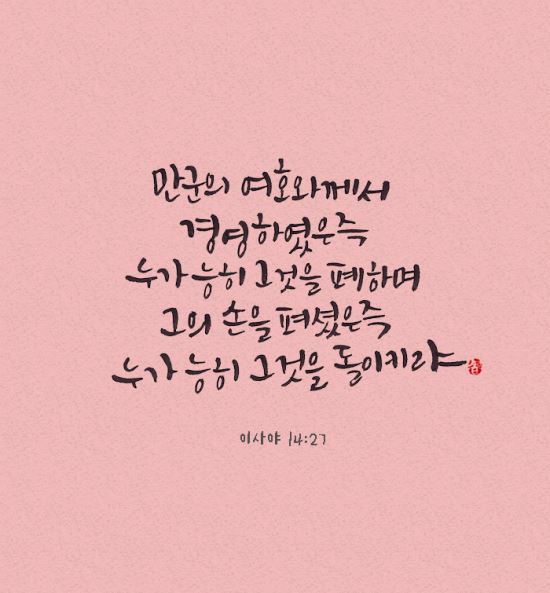 만군의 여호와께서
경영하였은즉
누가 능히 그것을 폐하며
그의 손을 펴셨은즉
누가 능히 그것을 돌이키랴
이사야 14:27